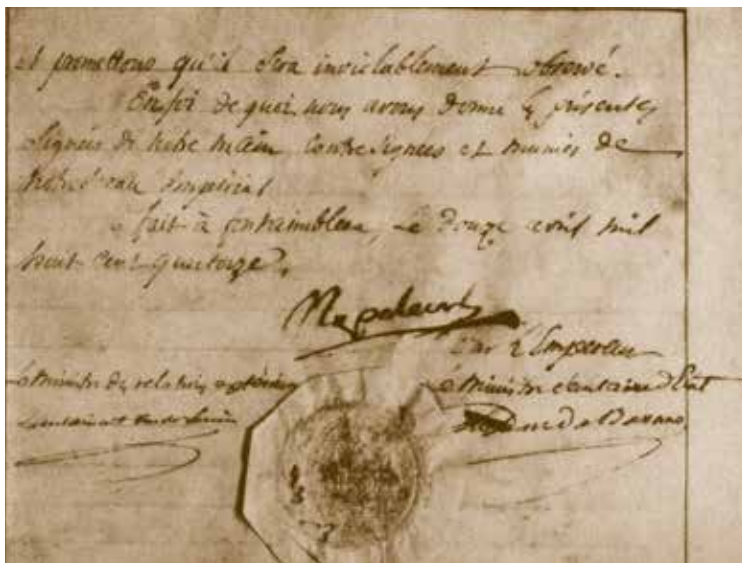 et promettons qu'il sera inviolablement observé.
En foi de quoi nous avons donné les présentes
signées de notre main contresignées et munies de
notre sceau impérial
fait à fontainebleau, le douze avril mil
huit cent quatorze.
Napoleon
Par l'Empereur
Le Ministre des relations extérieures
Le Ministre Secrétaire d'Etat
Caulaincourt duc de Vicence
Le Duc de Bassano